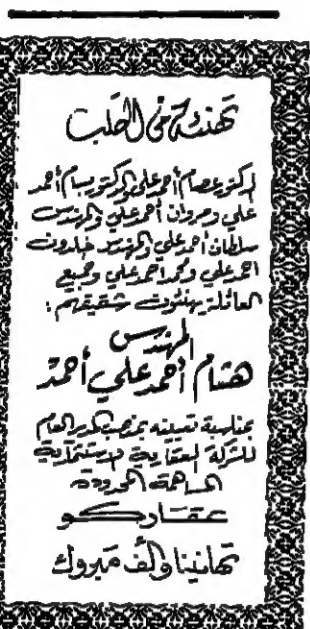 تهنئة من القلب
الدكتور عصام أحمد علي والدكتور بسام أحمد
علي ومروان أحمد علي والمهندس
سلطان أحمد علي والمهندس خلدون
أحمد علي ومحمد أحمد علي وجميع
العائلة يهنئون شقيقهم :
المهندس
هشام أحمد علي أحمد
بمناسبة تعيينه بمنصب المدير العام
للشركة العقارية الاستثمارية
المساهمة المحدودة
عقاركو
تهانينا وألف مبروك